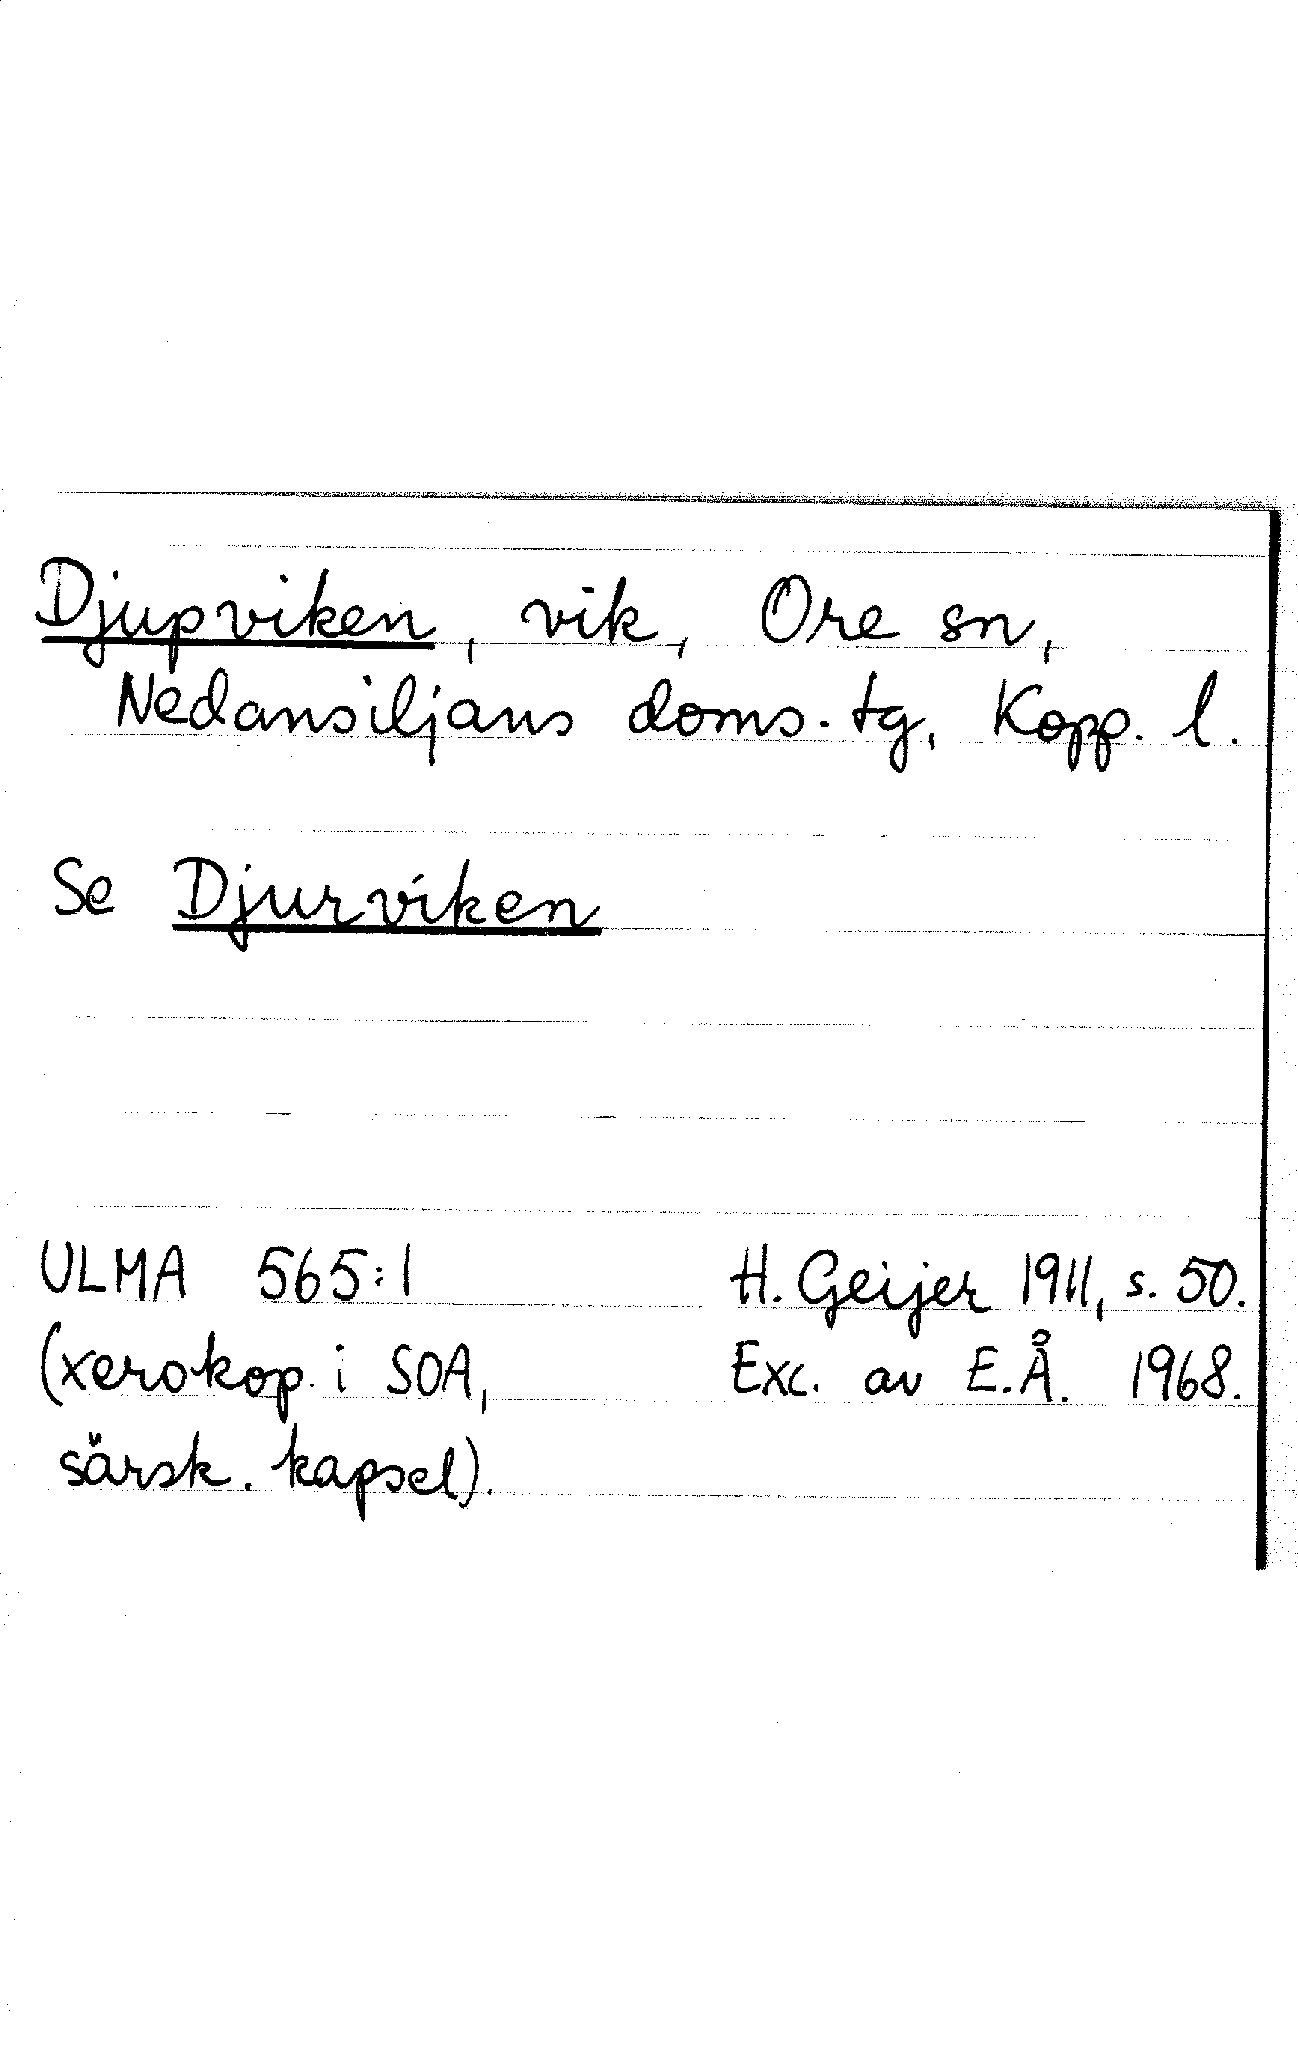 Djupviken, vik, Ore sn,
Nedansiljans doms. tg, Kopp. l.
Se Djurviken
ULMA 565:1
(xerokop. i SOA,
särsk. kapsel).
H. Geijer 1911, s. 50.
Exc. av E.Å. 1968.